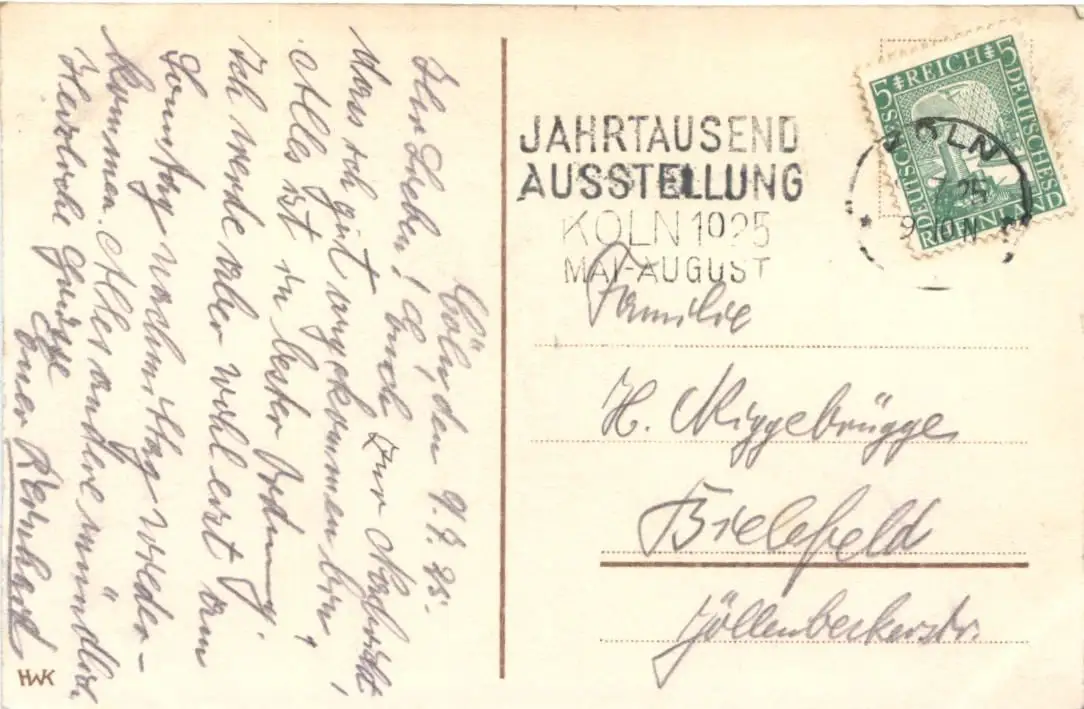 Cöln, den 9.7.25.
Ihr Lieben! Euch zur Nachricht,
dass ich gut angekommen bin,
Alles ist in bester Ordnung.
Ich werde aber wohl erst am
Sonntag Nachmittag wieder-
kommen. Alles andere mündlich.
Herzliche Grüsse
Euer Reinhard
HWK
JAHRTAUSEND
AUSSTELLUNG
KÖLN 1925
MAI-AUGUST
5 REICH 5
DEUTSCHES
DEUTSCHES
RHEINLAND
KÖLN
7.25
9-10 N
Familie
H. Niggebrügge,
Bielefeld
Jöllenbeckerstr.